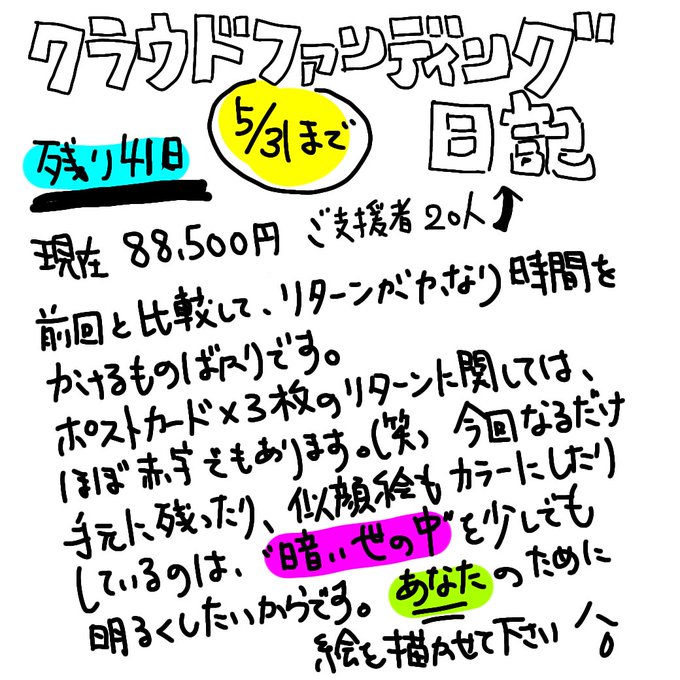 クラウドファンディング
日記
5/31まで
残り41日
現在 88,500円 ご支援者20人↑
前回と比較して、リターンがかなり時間を
かけるものばかりです。
ポストカード×3枚のリターンに関しては、
ほぼ赤字でもあります。(笑) 今回なるだけ
手元に残ったり、似顔絵もカラーにしたり
しているのは、"暗い世の中"を少しでも
明るくしたいからです。あなたのために
絵を描かせて下さい